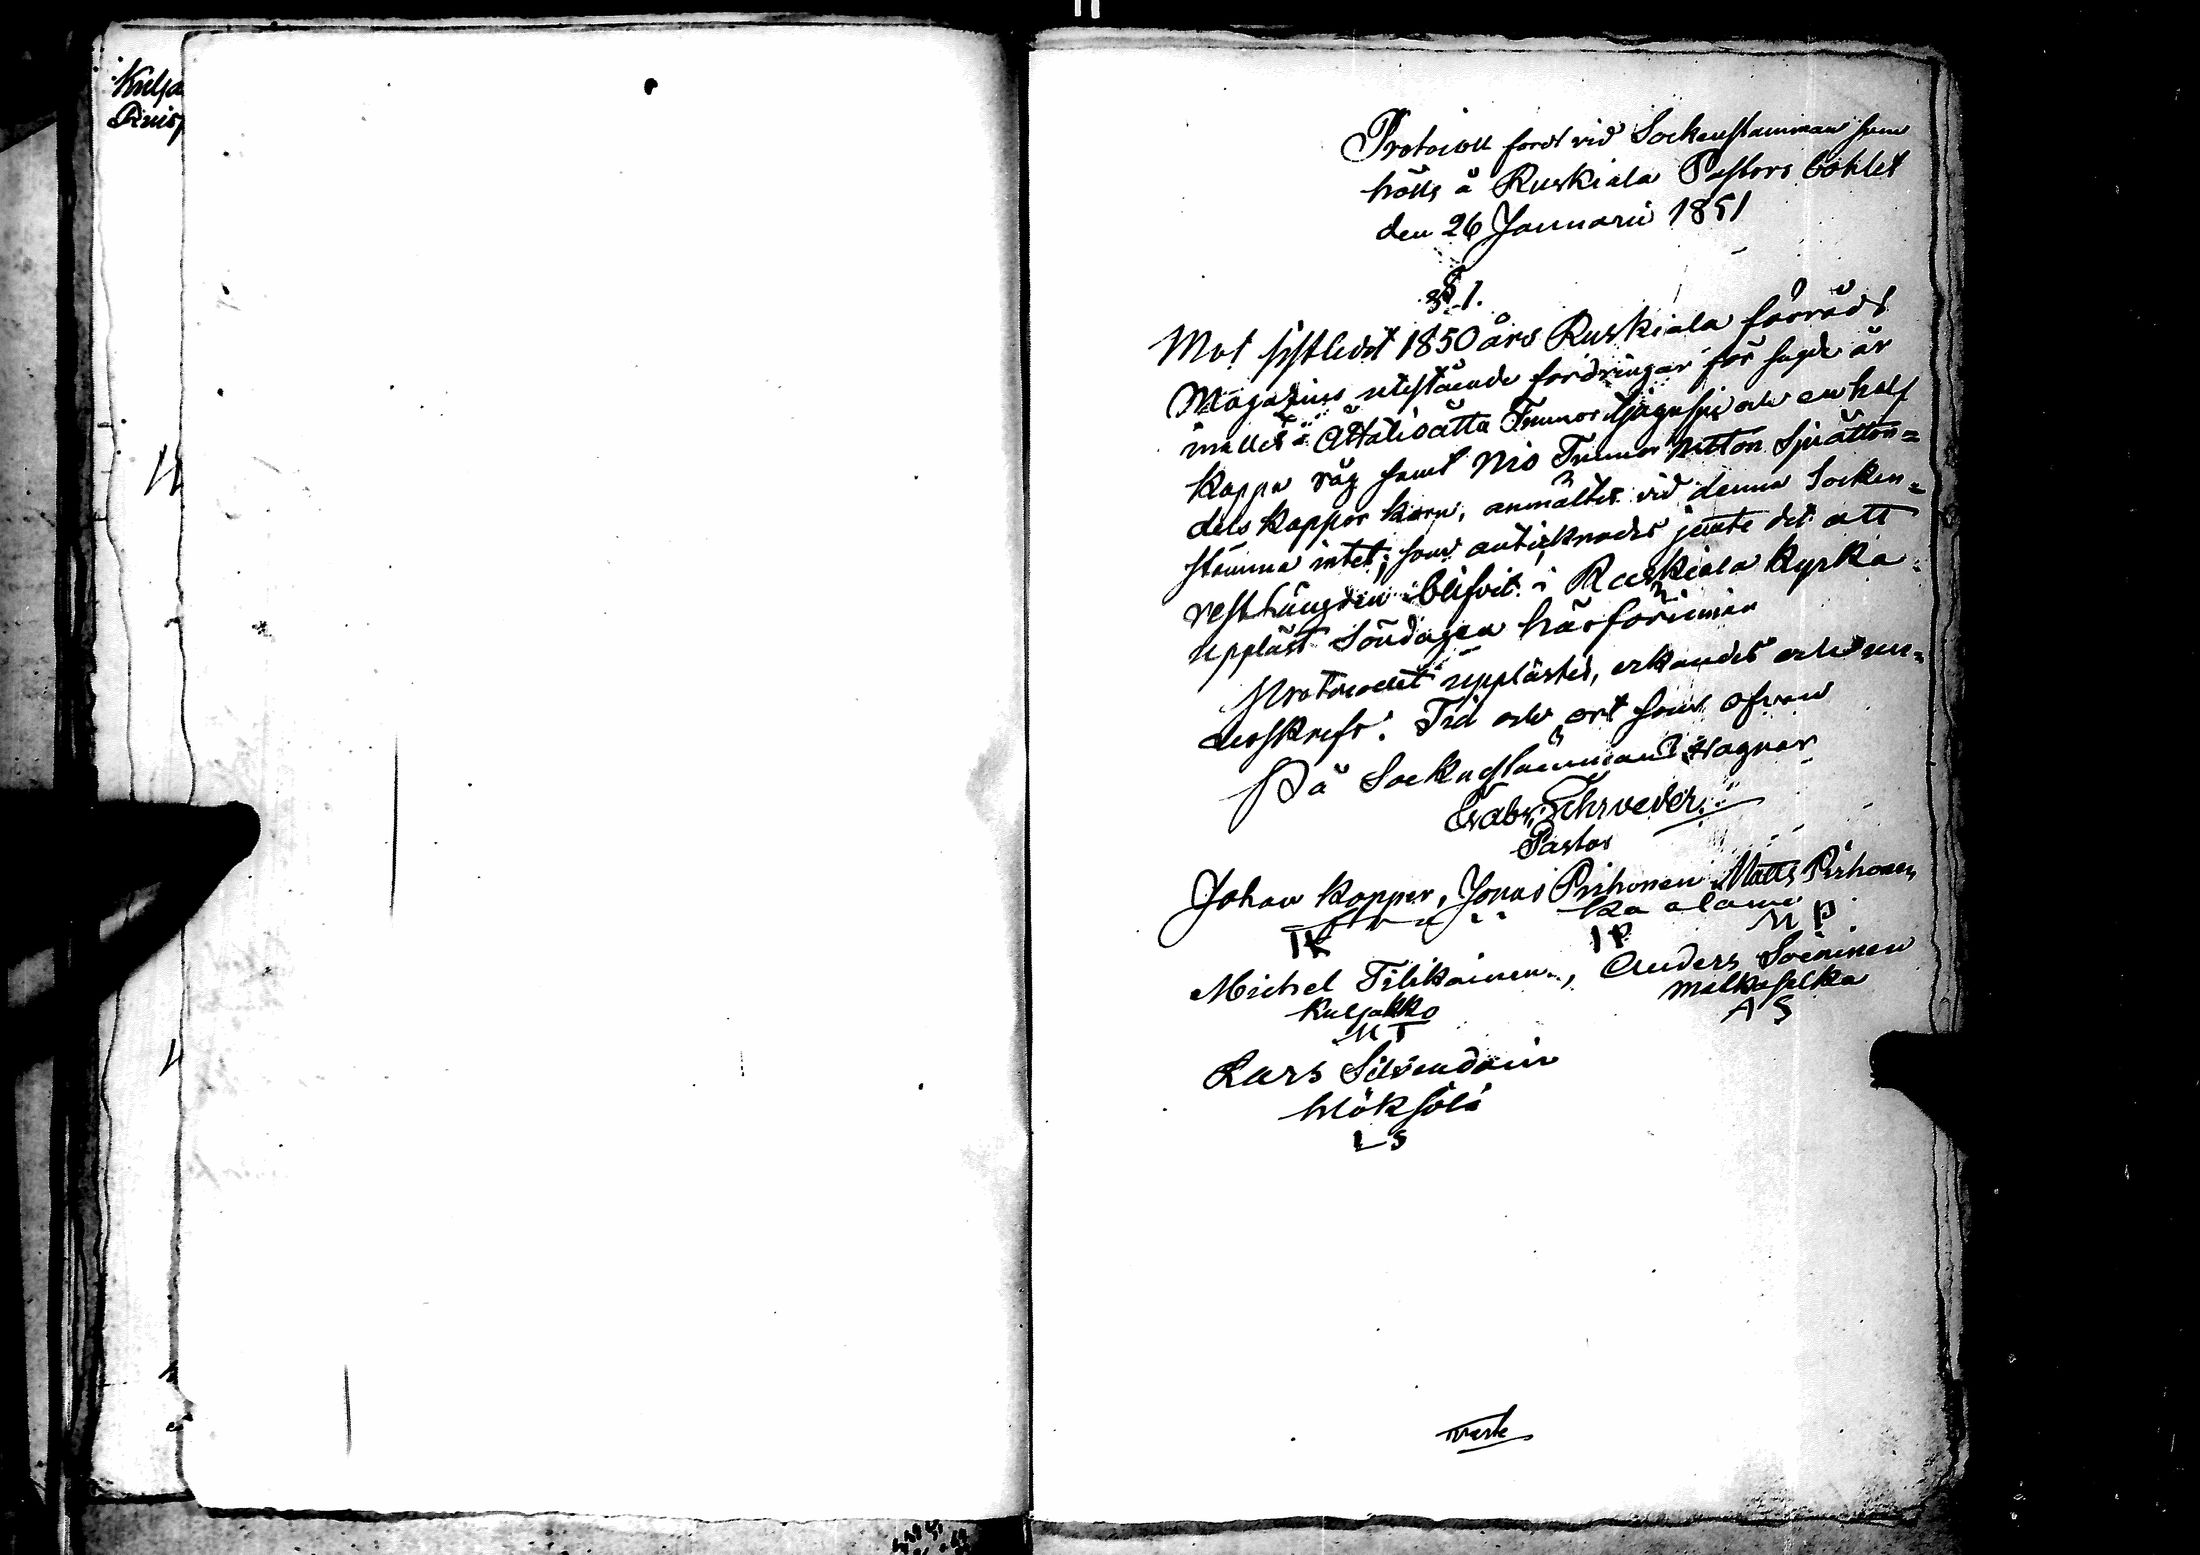 Kulja
Piris
Protocoll fördt vid Sockenstamman som
hölls å Ruskiala Pastors bohlet
den 26 Januarii 1851
§ 1.
Mot sistledet 1850 års Ruskiala förråds
Magazins utestående fordringar för sagde år
Åttatio åtta Tunnor tjugusju och en half
Kappa råg samt Nio Tunnor nitton Sjuåtton=
dels Kappor Korn, anmältes vid denna Socken=
stämma intet; som antecknades jemte det att
restlängden blifvit i Ruskiala Kyrka
uppläst Söndagen härförinnan
Protocollet upplästes, erkändes och un=
derskrefs. Tid och ort som ofvan
På Sockenstämmans vägnar
Gabr. Schroeder
Pastor
Johan Kopper, Jonas Pirhonen Matts Pirhonen
Kaalamo
IK IP MP
Michel Tilikainen, Anders Soininen
Kuljakko Matkaselka
MT AS
Lars Silvendoin
LS
Verte